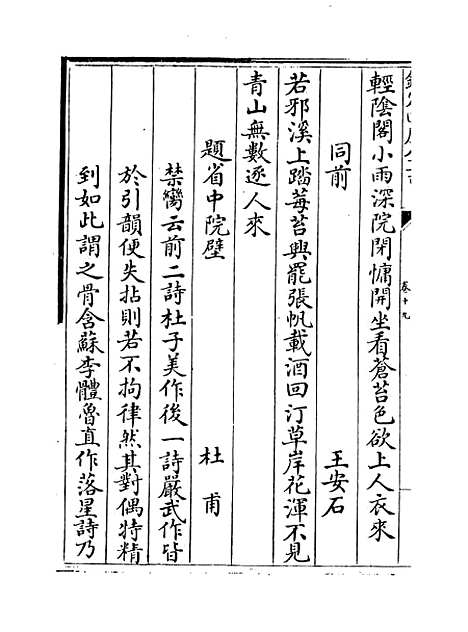 輕陰閣小雨深院閉慵開坐看蒼苔色欲上人衣來
同前 王安石
若邪溪上踏莓苔興罷張帆載酒回汀草岸花渾不見
青山無數逐人來
題省中院壁 杜甫
禁臠云前二詩杜子美作後一詩嚴武作皆
於引韻便失拈則若不拘律然其對偶特精
到如此謂之骨含蘇李體魯直作落星詩乃
卷十九